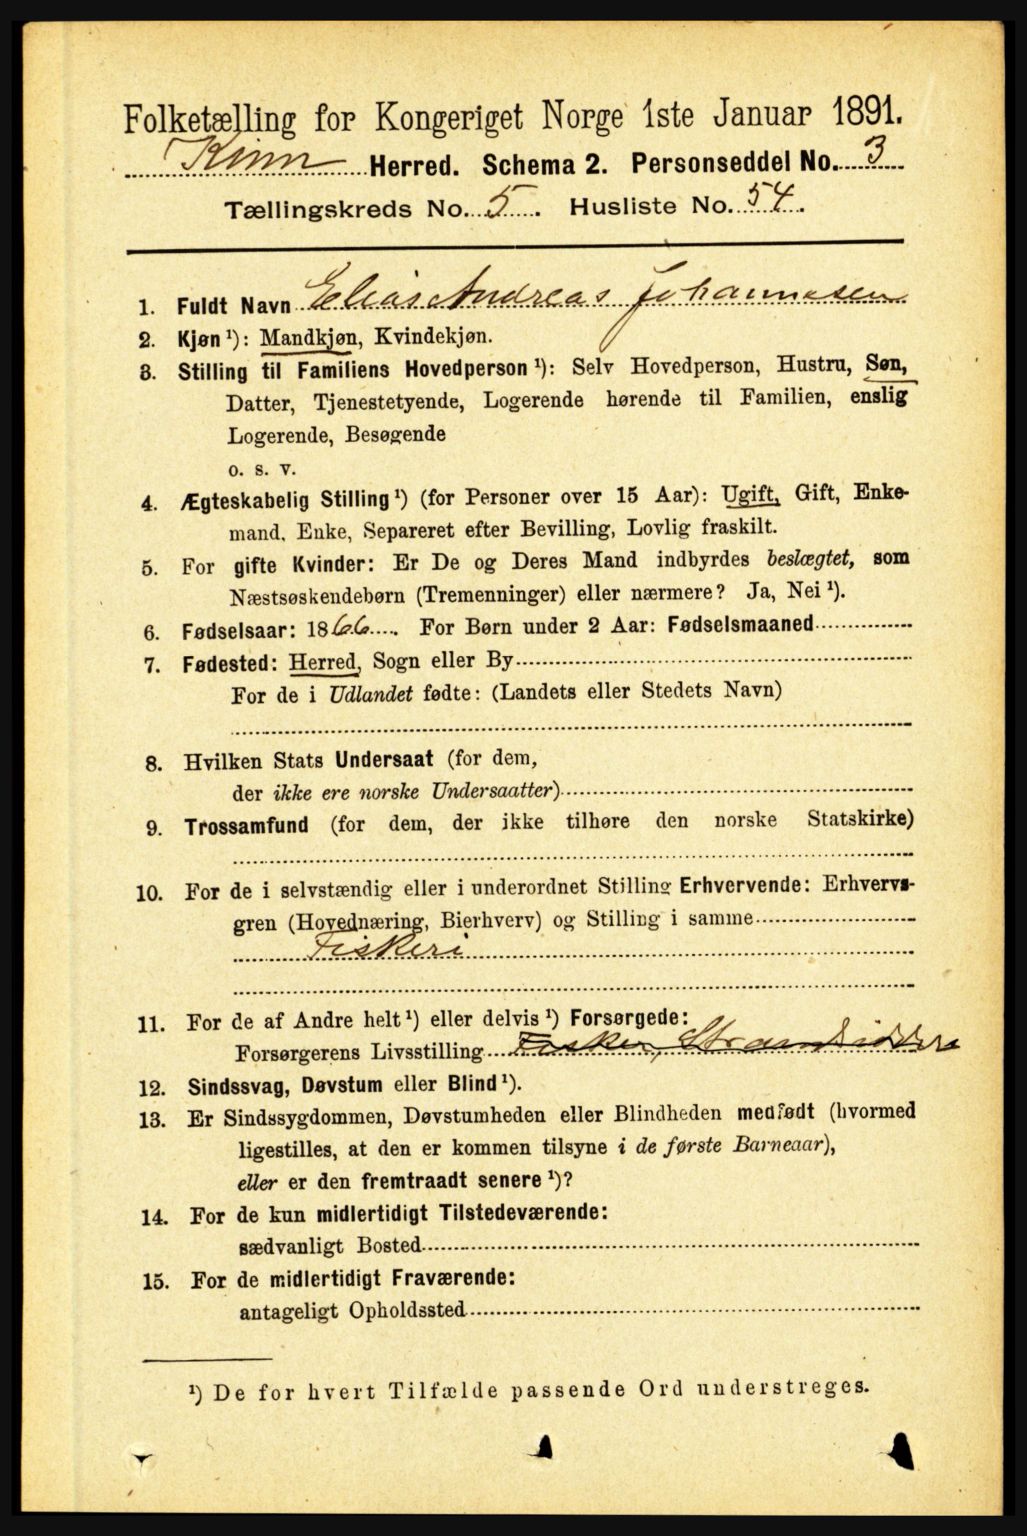 Folketælling for Kongeriget Norge 1ste Januar 1891.
Kinn Herred. Schema 2. Personseddel No. 3
Tællingskreds No. 5. Husliste No. 54.
1. Fuldt Navn Elias Andreas Johannesen
2. Kjøn ¹): Mandkjøn, Kvindekjøn.
3. Stilling til Familiens Hovedperson ¹): Selv Hovedperson, Hustru, Søn,
Datter, Tjenestetyende, Logerende hørende til Familien, enslig
Logerende, Besøgende
o. s. v.
4. Ægteskabelig Stilling ¹) (for Personer over 15 Aar): Ugift, Gift, Enke-
mand, Enke, Separeret efter Bevilling, Lovlig fraskilt.
5. For gifte Kvinder: Er De og Deres Mand indbyrdes beslægtet, som
Næstsøskendebørn (Tremenninger) eller nærmere? Ja, Nei ¹).
6. Fødselsaar: 1866. For Børn under 2 Aar: Fødselsmaaned
7. Fødested: Herred, Sogn eller By
For de i Udlandet fødte: (Landets eller Stedets Navn)
8. Hvilken Stats Undersaat (for dem,
der ikke ere norske Undersaatter)
9. Trossamfund (for dem, der ikke tilhøre den norske Statskirke)
10. For de i selvstændig eller i underordnet Stilling Erhvervende: Erhvervs-
gren (Hovednæring, Bierhverv) og Stilling i samme
Fiskeri
11. For de af Andre helt ¹) eller delvis ¹) Forsørgede:
Forsørgerens Livsstilling Fisker, Strandsidder
12. Sindssvag, Døvstum eller Blind ¹).
13. Er Sindssygdommen, Døvstumheden eller Blindheden medfødt (hvormed
ligestilles, at den er kommen tilsyne i de første Barneaar),
eller er den fremtraadt senere ¹)?
14. For de kun midlertidigt Tilstedeværende:
sædvanligt Bosted
15. For de midlertidigt Fraværende:
antageligt Opholdssted
¹) De for hvert Tilfælde passende Ord understreges.